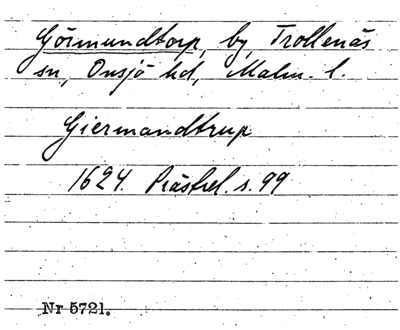 Görmundtorp, by, Trollenäs
sn, Onsjö hd, Malm. l.
Giermandtrup
1624. Prästrel. s. 99
Nr 5721.